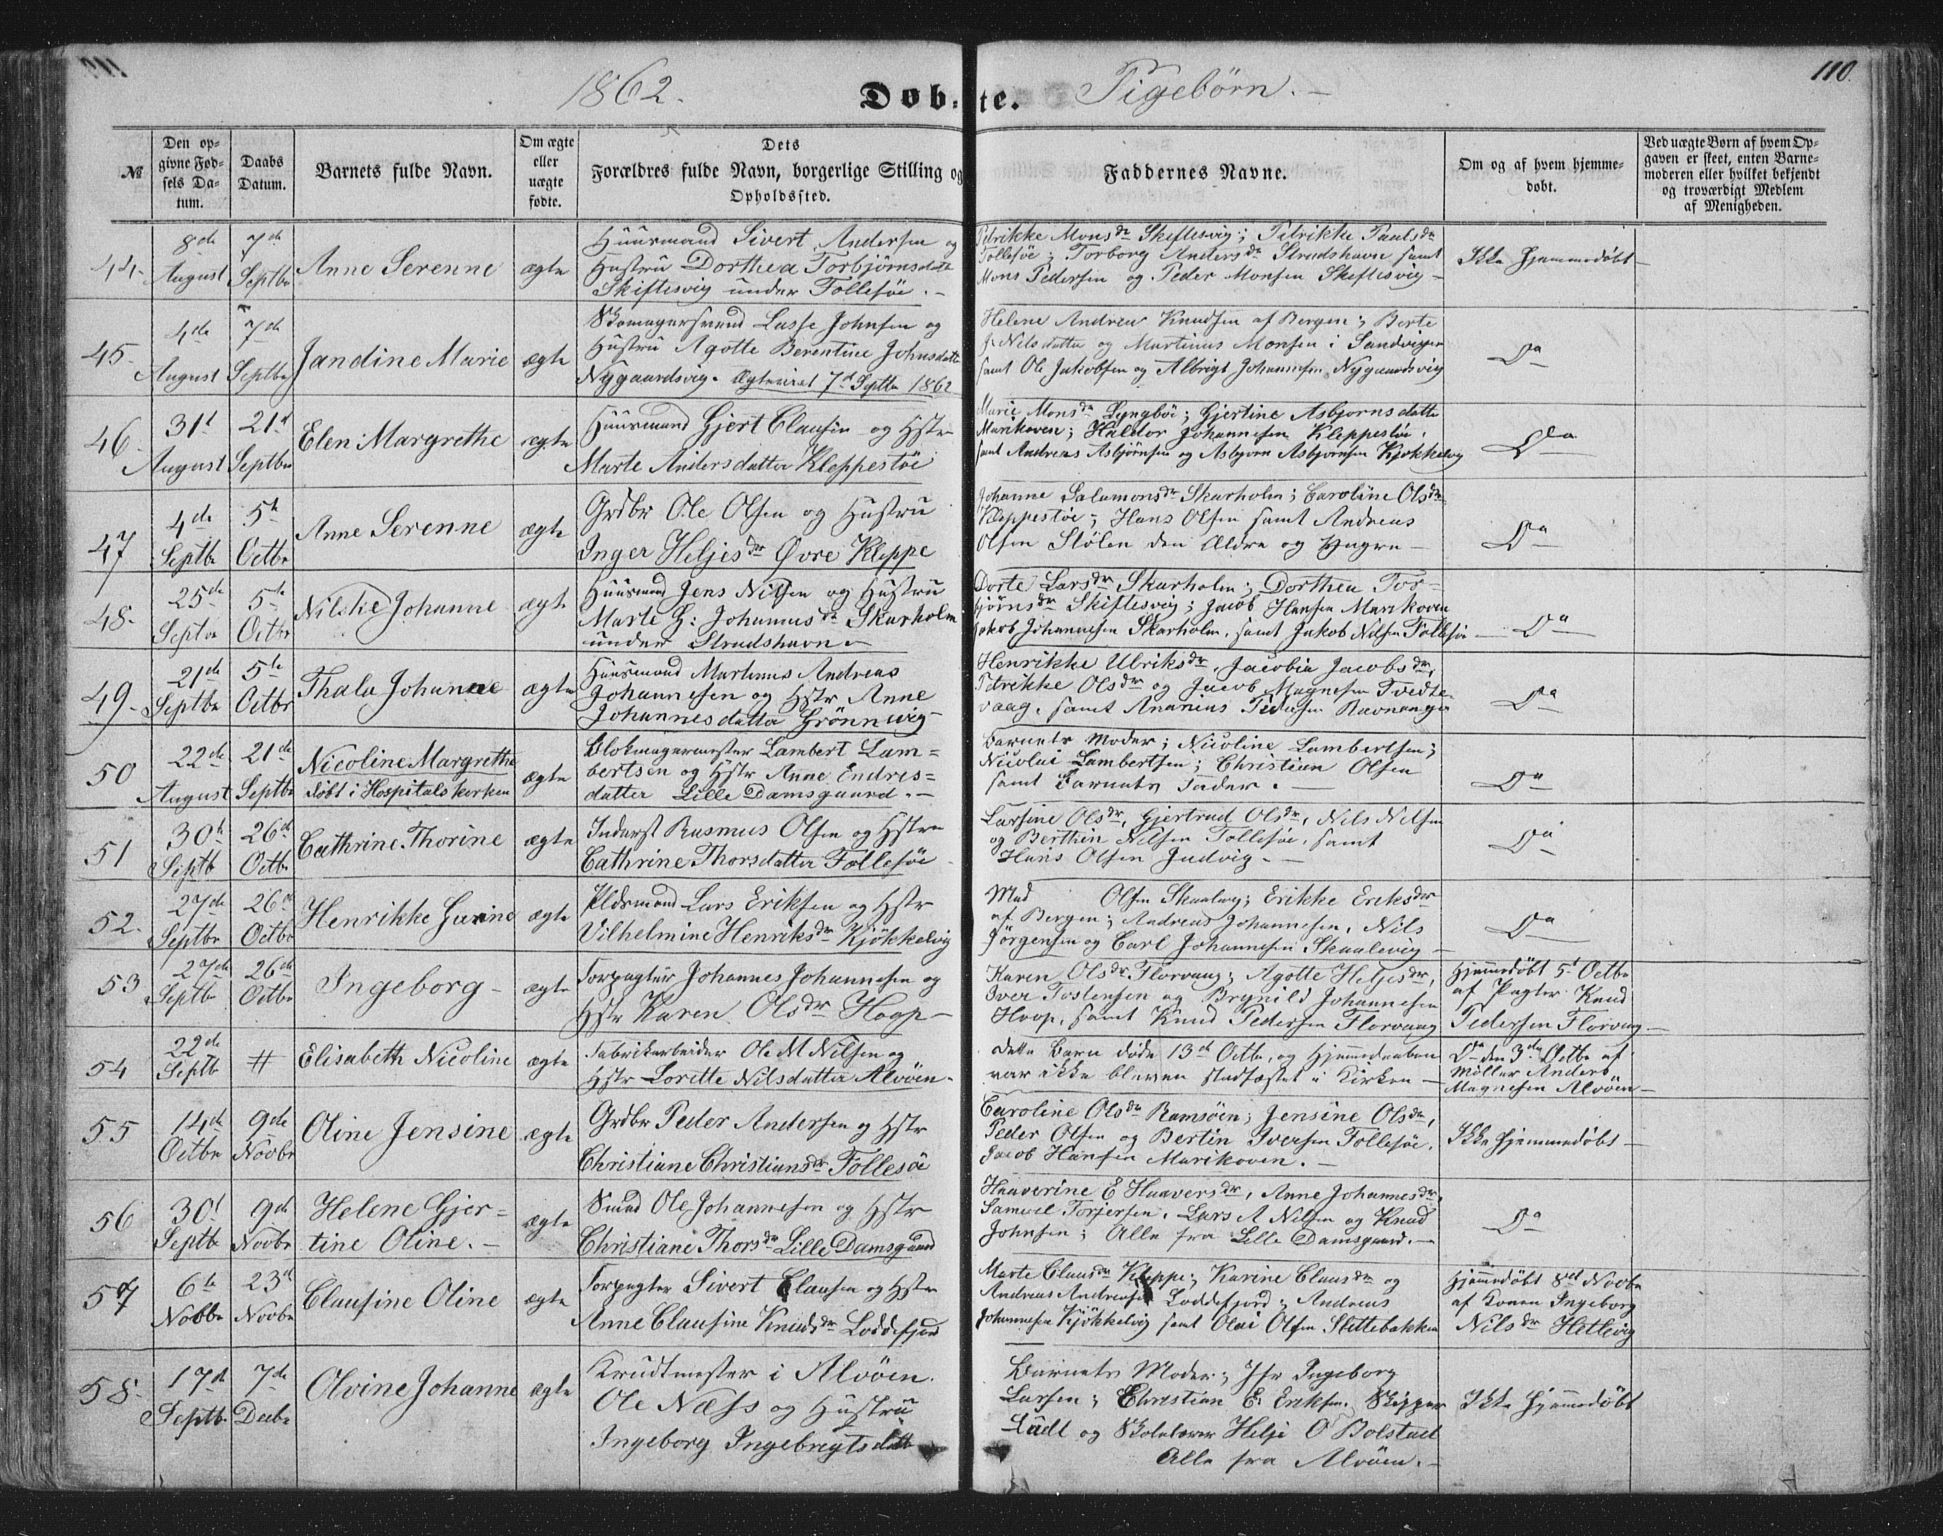 110.
1862.
Døbte.
Pigebørn. —
№
Den op-
givne Fød-
sels Da-
tum.
Daabs
Datum.
Barnets fulde Navn.
Om ægte
eller
uægte
fødte.
Dets
Forældres fulde Navn, borgerlige Stilling og
Opholdssted.
Faddernes Navne.
Om og af hvem hjemme-
døbt.
Ved uægte Børn af hvem Op-
gaven er skeet, enten Barne-
moderen eller hvilket bekjendt
og troværdigt Medlem
af Menigheden.
44.
8de
August
7de
Septbr
Anne Serenne
ægte
Huusmand Sivert Andersen og
Hustru Dorthea Torbjørnsdatte
Skiftesvig under Follesøe. —
Petrikke Monsdr Skiftesvig; Petrikke Paulsdr
Follesøe; Torborg Andersdr Strudshavn samt
Mons Pedersen og Peder Monsen Skiftesvig —
Ikke Hjemmedøbt —
45.
4de
August
7de
Septbr
Jandine Marie
ægte
Skomagersvend Lasse Johnsen og
Hustru Agotte Berentine Johnsdatte
Nygaardsvig. Ægteviet 7d Septbr 1862
Helene Andrea Knudsen af Bergen; Berte
Nilsdatter og Martinus Monsen i Sandvigen
samt Ole Jakobsen og Albrigt Johannesen Nygaardsvig
Do
46.
31t
August
21d
Septbr
Elen Margrethe
ægte
Huusmand Gjert Clausen og Hstr
Marte Andersdatter Kleppestøe
Marie Monsdr Lyngbøe; Gjertine Asbjørnsdatte
Marikoven; Haldor Johannesen Kleppestøe,
samt Andreas Asbjørnsen og Asbjørn Asbjørnsen Kjøkkelvig
Do
47
4de
Septbr
5te
Octbr
Anne Serenne
ægte
Grdbr Ole Olsen og Hustru
Inger Heljesdr Øvre Kleppe
Johanne Salamonsdr Skarholm; Caroline Olsdr
Kleppestøe; Hans Olsen samt Andreas
Olsen Stølen den Ældre og Yngre —
Do
48.
25de
Septbr
5te
Octbr
Nilske Johanne
ægte
Huusmand Jens Nilsen og Hustru
Marte H: Johannesdr Skarholm
under Strudshavn —
Dorte Larsdr Skarholm; Dorthea Tor-
bjørnsdr Skiftesvig; Jacob Hansen Marikoven
Jakob Johannesen Skarholm, samt Jakob Nilsen Follesøe —
Do
49.
21de
Septbr
5te
Octbr
Thala Johanne
ægte
Huusmand Martinus Andreas
Johannesen og Hstr Anne
Johannesdatter Grønnevig —
Henrikke Ulriksdr, Jacobia Jacobsdr,
Petrikke Olsdr og Jacob Magnesen Tvedte-
vaag, samt Ananias Pedersen Ravnanger
Do
50
22de
August
21de
Septbr
Nicoline Margrethe
døbt i Hospitalskirken
ægte
Blokmagermester Lambert Lam-
bertsen og Hstr Anne Endres-
datter Lille Damsgaard. —
Barnets Moder; Nicoline Lambertsen;
Nicolai Lambertsen; Christian Olsen
samt Barnets Fader. —
Do
51
30te
Septb
26de
Octbr
Cathrine Thorine
ægte
Inderst Rasmus Olsen og Hstr
Cathrine Thorsdatter Follesøe
Larsine Olsdr, Gjertrud Olsdr, Nils Nilsen
og Berthin Nilsen Follesøe, samt
Hans Olsen Judvig. —
Do
52.
27de
Septbr
26de
Octbr
Henrikke Gurine
ægte
Pldsmand Lars Eriksen og Hstr
Vilhelmine Henriksdr Kjøkkelvig
Mad Olsen Skaalevig; Erikke Eriksdr
af Bergen; Andreas Johannesen, Nils
Jørgensen og Carl Johannesen Skaalevig —
Do
53
27de
Septbr
26de
Octbr
Ingeborg —
ægte
Forpagter Johannes Johannesen og
Hstr Karen Olsdr Hogp —
Karen Olsdr Florvaag; Agotte Heljesdr,
Iver Tostensen og Brynild Johannesen
Hoop, samt Knud Pedersen Florvaag
Hjemmedøbt 5t Octbr
af Pagter Knud
Pedersen Florvaag —
54
22de
Septb
#
Elisabeth Nicoline
ægte
Fabrikarbeider Ole M Nilsen og
Hstr Lorette Nilsdatter Alvøen —
dette Barn døde 13de Octbr, og Hjemmedaaben
var ikke bleven stadfæstet i Kirken —
Do den 3de Octbr af
Møller Anders
Magnesen Alvøen —
55
14de
Octbr
9de
Novbr
Oline Jensine
ægte
Grdbr Peder Andersen og Hstr
Christiane Christiansdr Follesøe
Caroline Olsdr Ramsøen; Jensine Olsdr,
Peder Olsen og Bertin Iversen Follesøe,
Jacob Hansen Marikoven. —
Ikke Hjemmedøbt —
56
30t
Septbr
9de
Novbr
Helene Gjer-
tine Oline. —
ægte
Smed Ole Johannesen og Hstr
Christiane Thorsdr Lille Damsgaard
Haaverine E Haaversdr, Anne Johannesdr,
Samuel Torjersen, Lars A Nilsen og Knud
Johnsen; Alle fra Lille Damsgaard. —
Do
57
6te
Novbr
23d
Novbr
Clausine Oline
ægte
Forpagter Sivert Clausen og Hstr
Anne Clausine Knudsdr Loddefjord
Marte Clausdr Kleppe; Karine Clausdr og
Andreas Andersen Loddefjord; Andreas
Johannesen Kjøkkelvig samt Olai Olsen Slettebakken
Hjemmedøbt 8de Novbr
af Konen Ingeborg
Nilsdr Hetlevig
58.
17de
Septbr
7de
Decbr
Olvine Johanne
ægte
Krudtmester i Alvøen.
Ole Næss og Hustru
Ingeborg Ingebregtsdatte
Barnets Moder; Jfr Ingeborg
Larsen; Christian E. Eriksen, Skipper
Lådt og Skolelærer Helje O Bolstad
Alle fra Alvøen. —
Ikke Hjemmedøbt